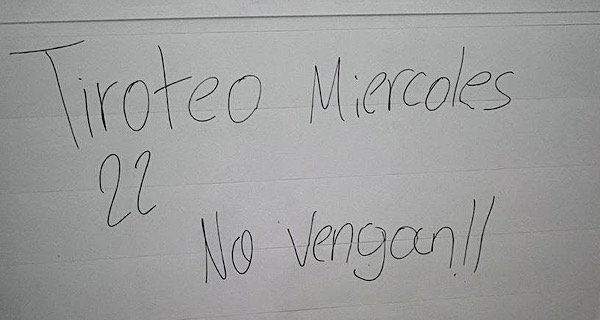 Tiroteo Miercoles
22
No vengan!!